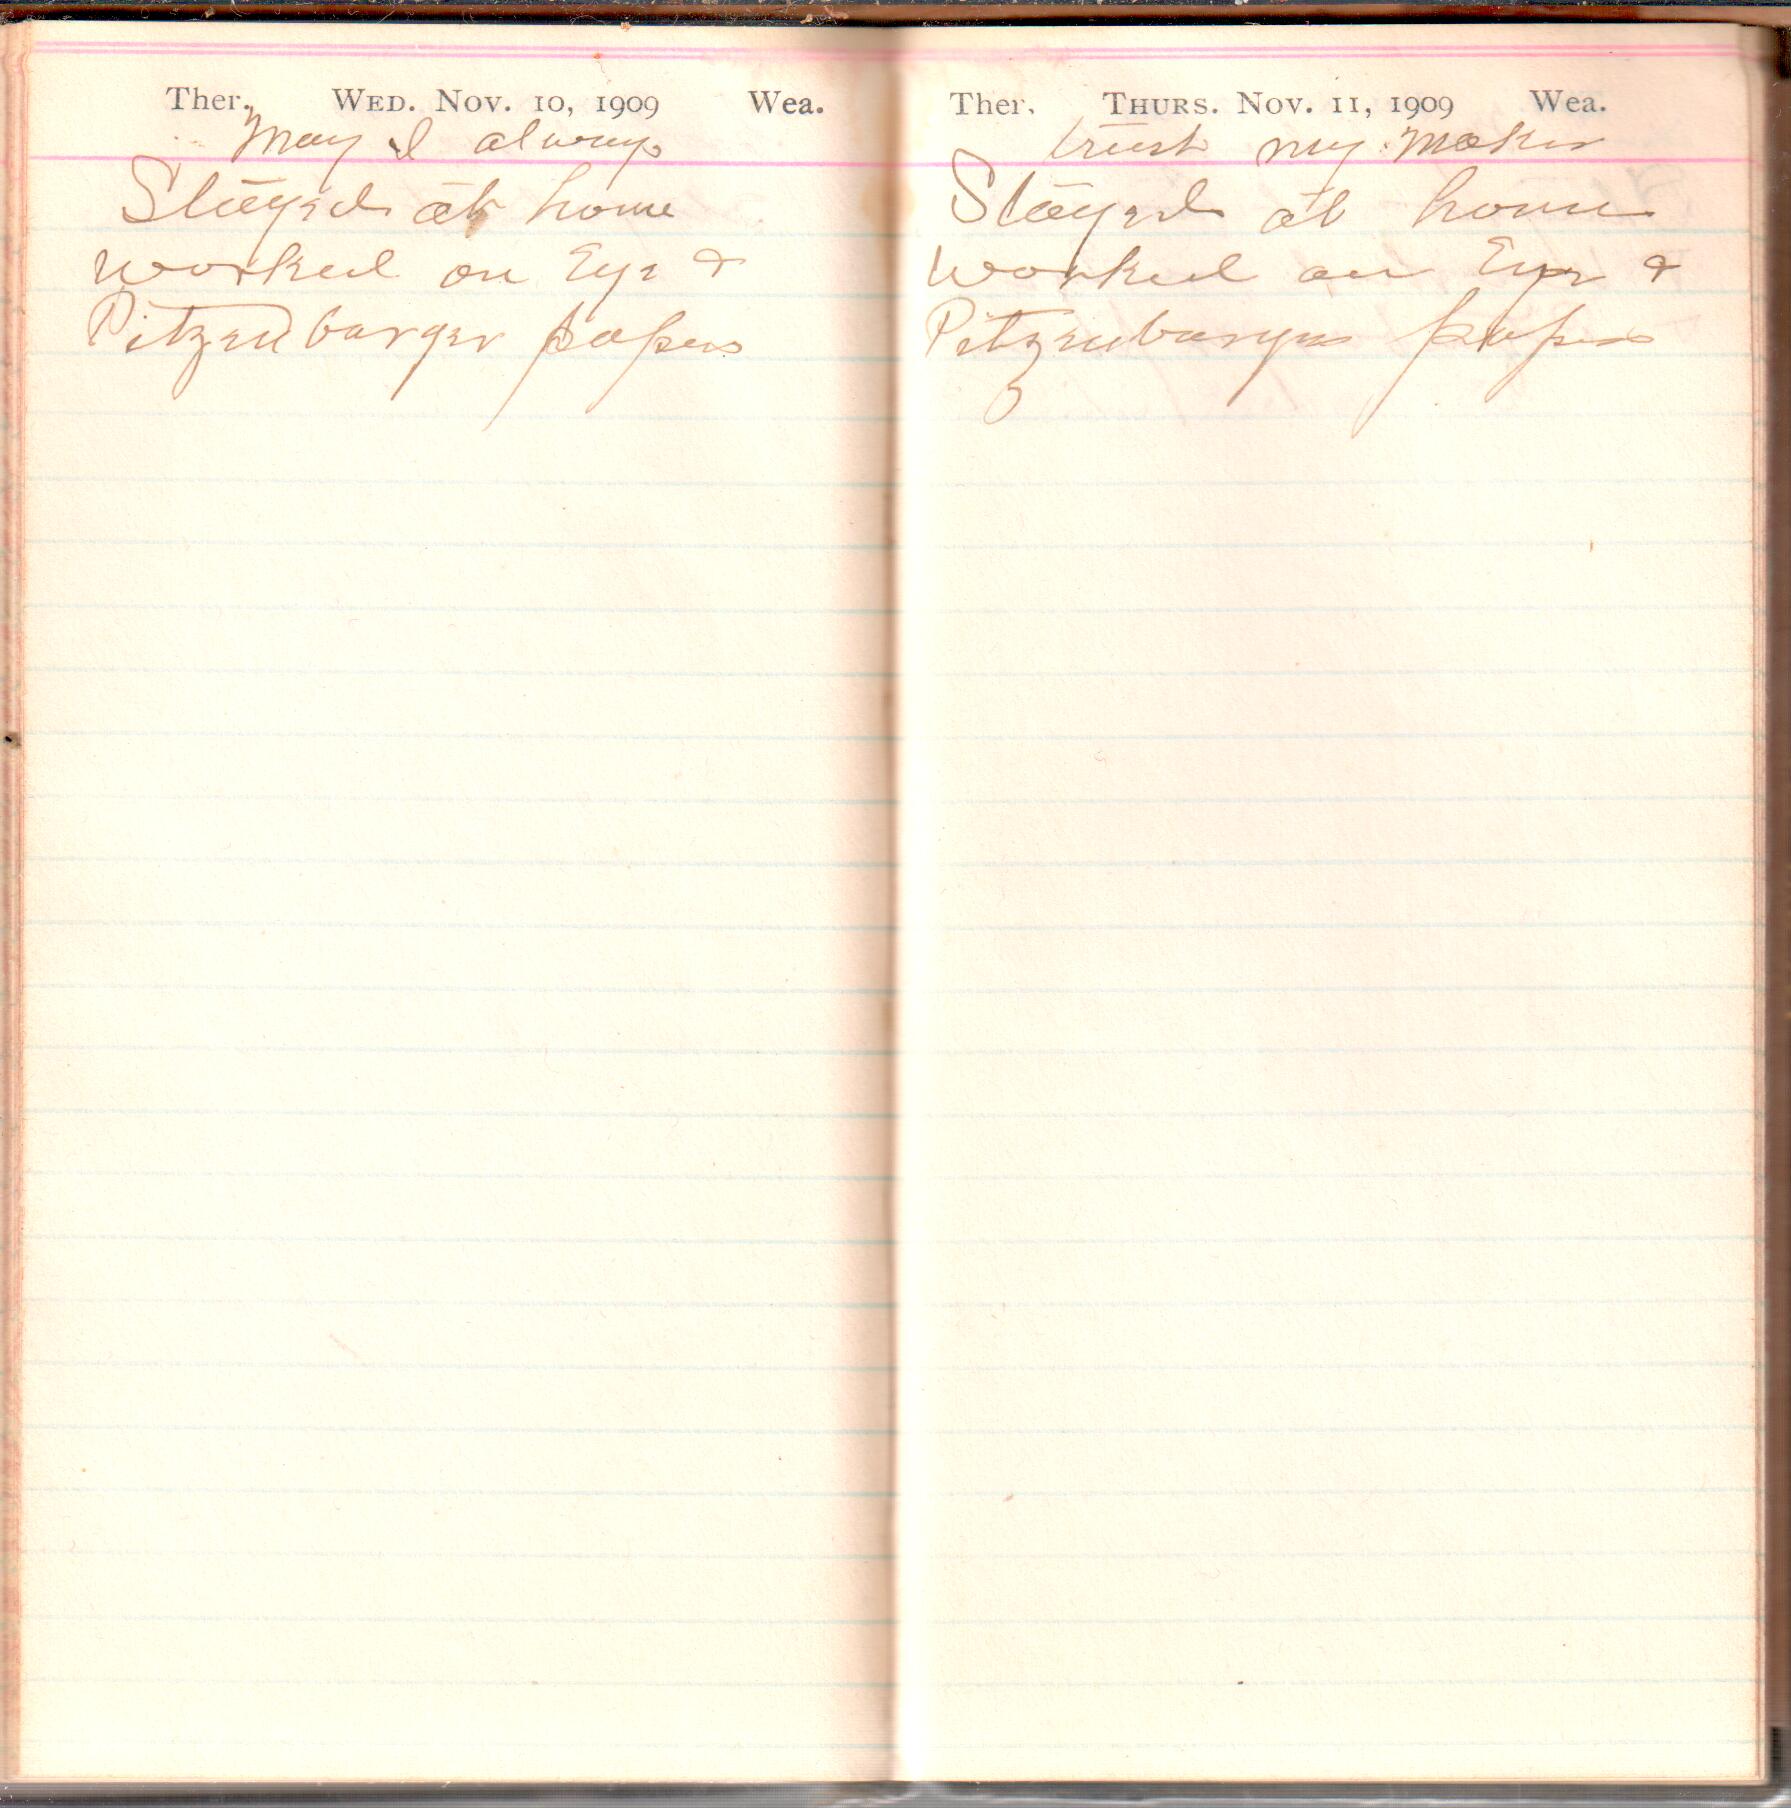 Ther. WED. NOV. 10, 1909 Wea.
May I always
Stayed at home
worked on Eye &
Pitzenbarger papers
Ther. THURS. NOV. 11, 1909 Wea.
trust my Maker
Stayed at home
Worked on Eye &
Pitzenbarger papers